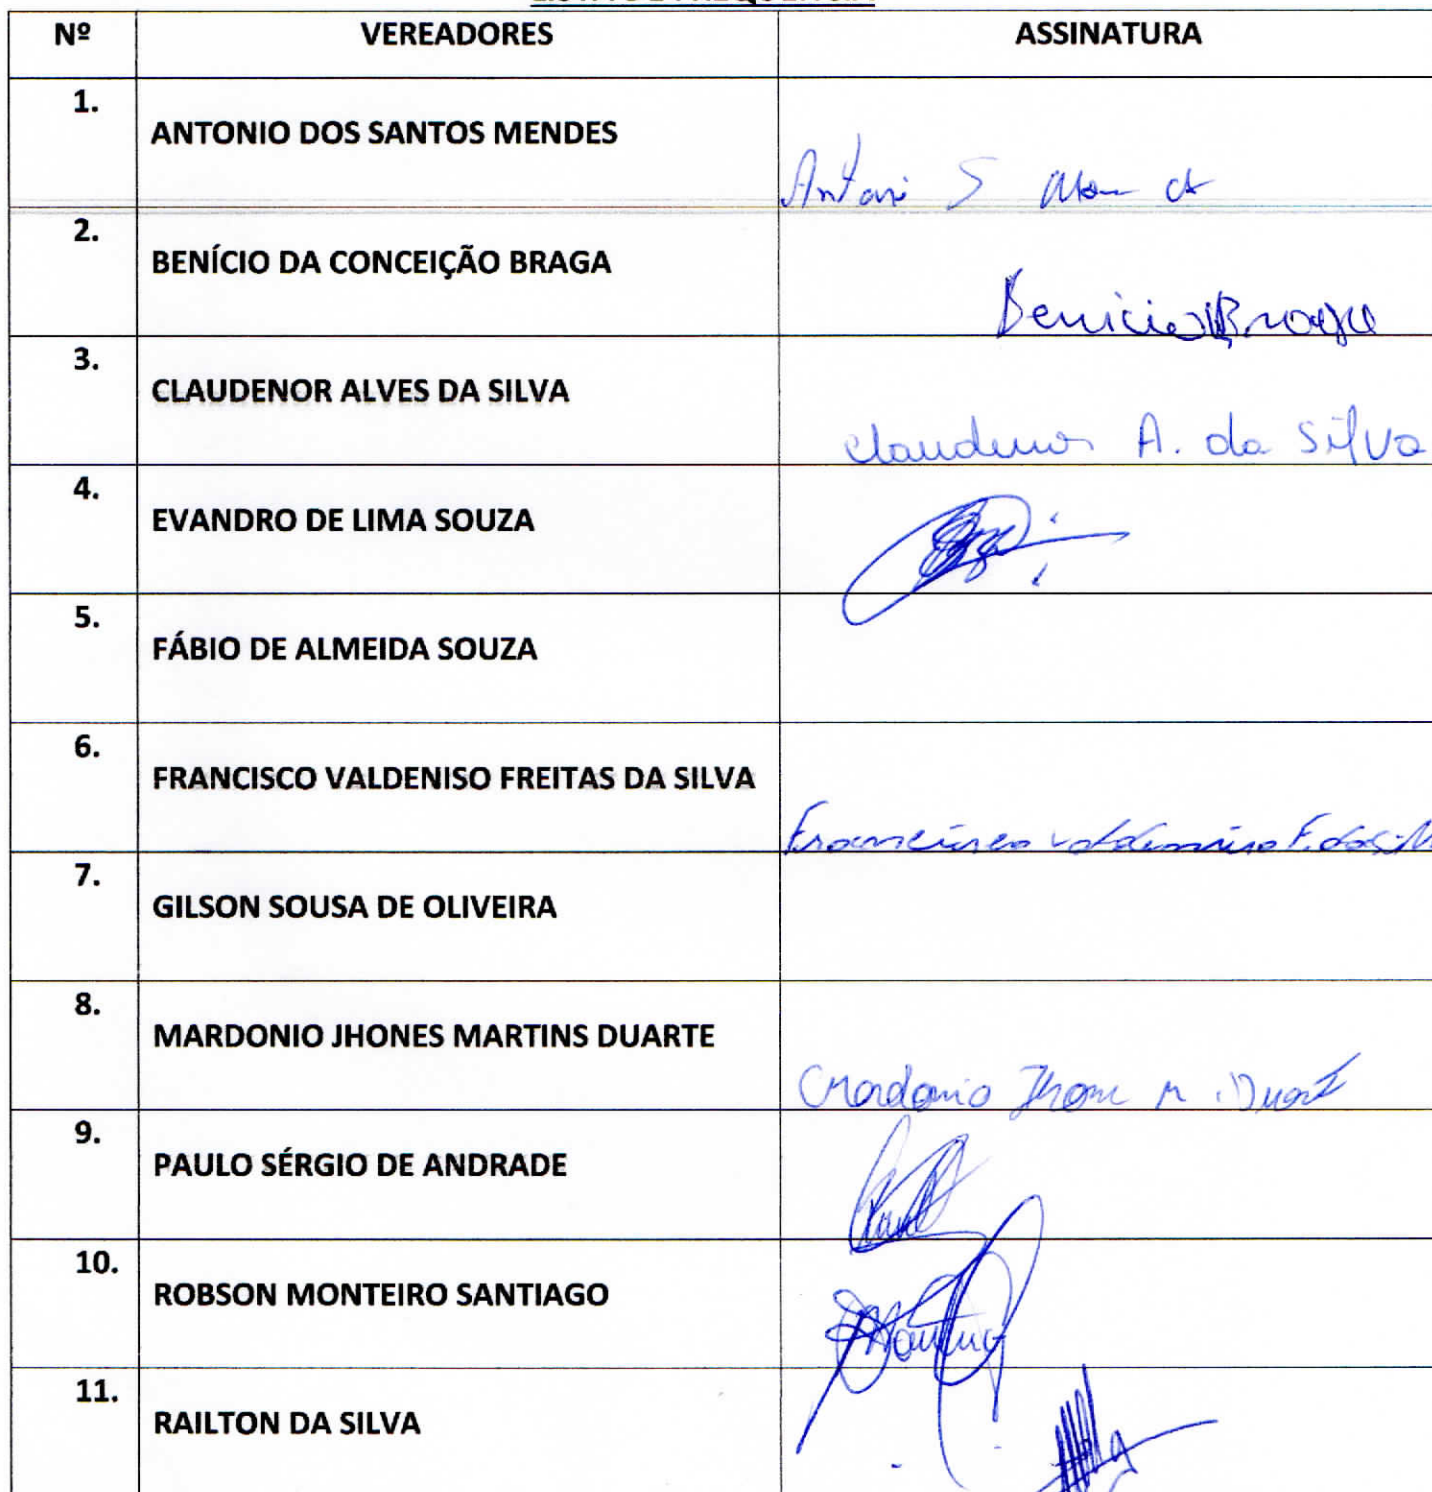 Nº VEREADORES ASSINATURA
1. ANTONIO DOS SANTOS MENDES
Antoni S
2. BENÍCIO DA CONCEIÇÃO BRAGA
Benicio Braga
3. CLAUDENOR ALVES DA SILVA
Claudenor A. da Silva
4. EVANDRO DE LIMA SOUZA
5. FÁBIO DE ALMEIDA SOUZA
6. FRANCISCO VALDENISO FREITAS DA SILVA
Francisco Valdeniso F. da
7. GILSON SOUSA DE OLIVEIRA
8. MARDONIO JHONES MARTINS DUARTE
Mardonio Jhone M. Duart
9. PAULO SÉRGIO DE ANDRADE
10. ROBSON MONTEIRO SANTIAGO
11. RAILTON DA SILVA